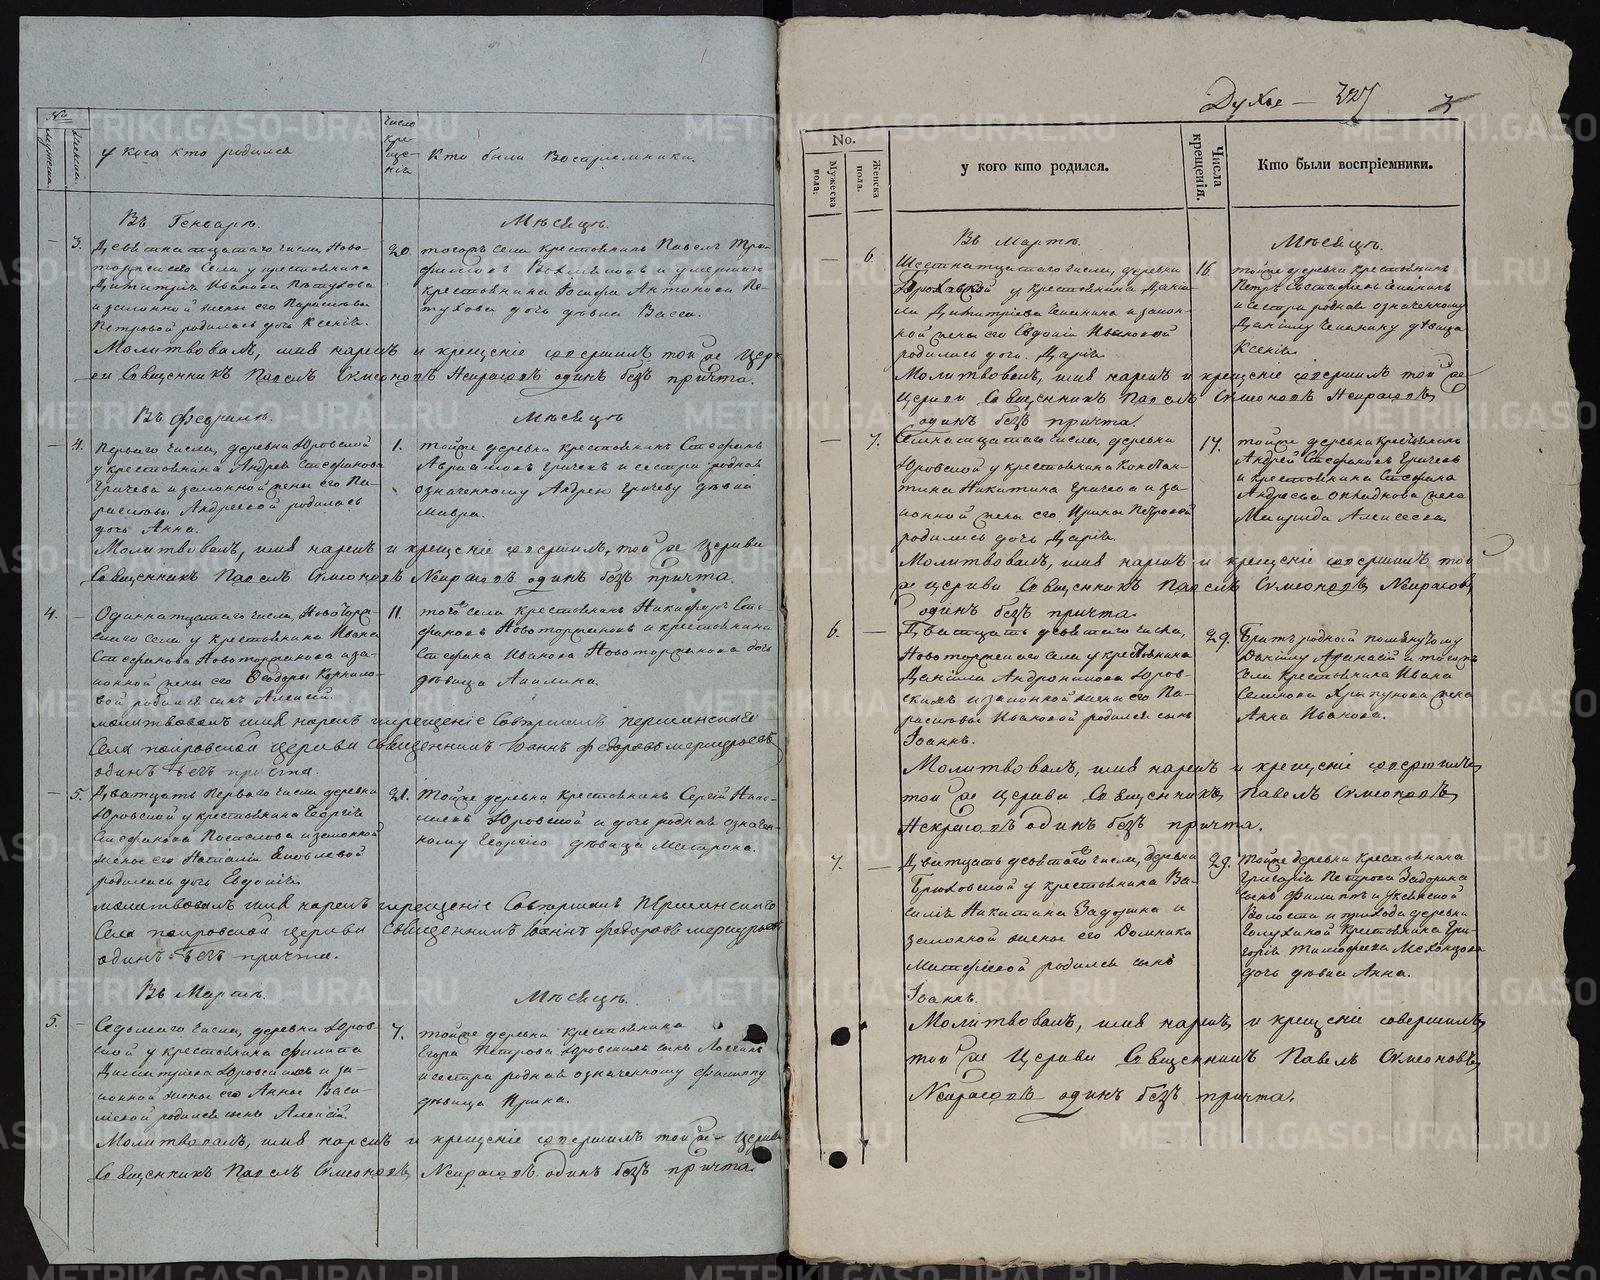 №
Мужеска.
Женска.
у кого кто родился
число
кре-
ще-
нія
Кто были Воспріемники.
Въ Генварѣ.
Мѣсяцѣ.
3. Девятнатцатаго числа, Ново-
торжскаго Села у крестьянина
Димитрія Иванова Пѣтухова
и законной жены его Параскевы
Петровой родилась дочь Ксенія.
20. тогожъ села крестьянинъ Павелъ Тро-
фимовъ и умершаго
крестьянина Іосифа Антонова Пе-
тухова дочь дѣвка Васса.
Молитвовалъ, имя нарекъ и крещеніе совершилъ той же Церк
ви Священникъ Павелъ Симеоновъ Некрасовъ одинъ безъ причта.
Въ Февралѣ.
Мѣсяцѣ
4. Перваго числа, деревни Юровской
у крестьянина Андрея Стефанова
Грачева и законной жены его Па-
раскевы Андреевой родилась
дочь Анна.
1. тойже деревни крестьянинъ Стефанъ
Грачевъ и сестра родная
означенному Андрею Грачеву дѣвка
Мавра.
Молитвовалъ, имя нарекъ и крещеніе совершилъ, той же Церкви
Священникъ Павелъ Симеоновъ Некрасовъ одинъ безъ причта.
4. Одиннатцатаго числа, Новоторж-
скаго села у крестьянина Ивана
Стефанова Новоторженова и за-
конной жены его Ѳеодоры Корнило-
вой родился сынъ Алексій.
11. того села крестьянинъ Никифоръ Сте-
фановъ Новоторженовъ и крестьянина
Стефана Иванова Новоторженова дочь
дѣвица Акилина.
молитвовалъ имя нарекъ и крещеніе Совершилъ Першинскаго
Села покровской церкви священникъ Іоаннъ Федоровъ Меркурьевъ
одинъ безъ причта.
5. Дватцать Перваго числа деревни
Юровской у крестьянина Георгія
Стефанова Постелова и законной
жены его Наталіи Яковлевой
родилась дочь Евдокія
21. Тойже деревни крестьянинъ Сергій
Юровской и дочь родная означен-
ному Георгію дѣвица Матрона.
молитвовалъ имя нарекъ и крещеніе Совершилъ Першинскаго
Села покровской церкви Священникъ Іоаннъ Федоровъ Меркурьевъ
одинъ безъ причта.
Въ Мартѣ.
Мѣсяцѣ.
5. Седьмаго числа, деревни Юров-
ской у крестьянина Филипа
Димитріева Юровскихъ и за-
конной жены его Анны Васи-
льевой родился сынъ Алексій.
7. тойже деревни крестьянина
Егора Петрова Юровскихъ сынъ Логгинъ
и сестра родная означенному Филиппу
дѣвица Ирина.
Молитвовалъ, имя нарекъ и крещеніе совершилъ той же Церкви
Священникъ Павелъ Симеоновъ Некрасовъ одинъ безъ причта.
327
No.
Мужеска пола.
Женска пола.
у кого кто родился.
Числа крещенія.
Кто были воспріемники.
Въ Мартѣ.
Мѣсяцѣ.
6. Шестнатцатаго числа, деревни
Брюховской у крестьянина Дани-
ла Димитріева и закон-
ной жены его Евдокіи Ивановой
родилась дочь Дарія.
16. тойже деревни крестьянинъ
Петръ Евстафіевъ
и сестра родная означенному
Данилу дѣвица
Ксенія.
Молитвовалъ, имя нарекъ и крещеніе совершилъ той же
Церкви Священникъ Павелъ Симеоновъ Некрасовъ
одинъ безъ причта.
7. Семнатцатаго числа, деревни
Юровской у крестьянина Констан-
тина Никитина Грачева и за-
конной жены его Ирины Петровой
родилась дочь Дарія.
17. тойже деревни крестьянинъ
Андрей Стефановъ Грачевъ
и крестьянина Стефана
Андреева жена
Алексеева.
Молитвовалъ, имя нарекъ и крещеніе совершилъ той
же церкви Священникъ Павелъ Симеоновъ Некрасовъ,
одинъ безъ причта.
6. Дватцать девятаго числа,
Новоторжскаго села у крестьянина
Данила Андроникова Юров-
скихъ и законной жены его Па-
раскевы Ивановой родился сынъ
Іоаннъ.
29. Братъ родной помянутому
Данилу Афанасій и тогожъ
села Крестьянина Ивана
Семенова Хрипунова жена
Анна Иванова.
Молитвовалъ, имя нарекъ и крещеніе совершилъ
той же Церкви Священникъ Павелъ Симеоновъ
Некрасовъ одинъ безъ причта.
7. Дватцать девятаго числа, деревни
Брюховской у крестьянина Ва-
силія Никитина Задорина и
законной жены его Домники
Матфіевой родился сынъ
Іоаннъ.
29. тойже деревни крестьянина
Григорія Петрова Задорина
сынъ Филиппъ и
Волости и прихода деревни
Голухиной Крестьянина Гри-
горія Тимофеева
дочь дѣвка Анна.
Молитвовалъ, имя нарекъ и крещеніе совершилъ
той же Церкви Священникъ Павелъ Симеоновъ
Некрасовъ одинъ безъ причта.
METRIKI.GASO-URAL.RU